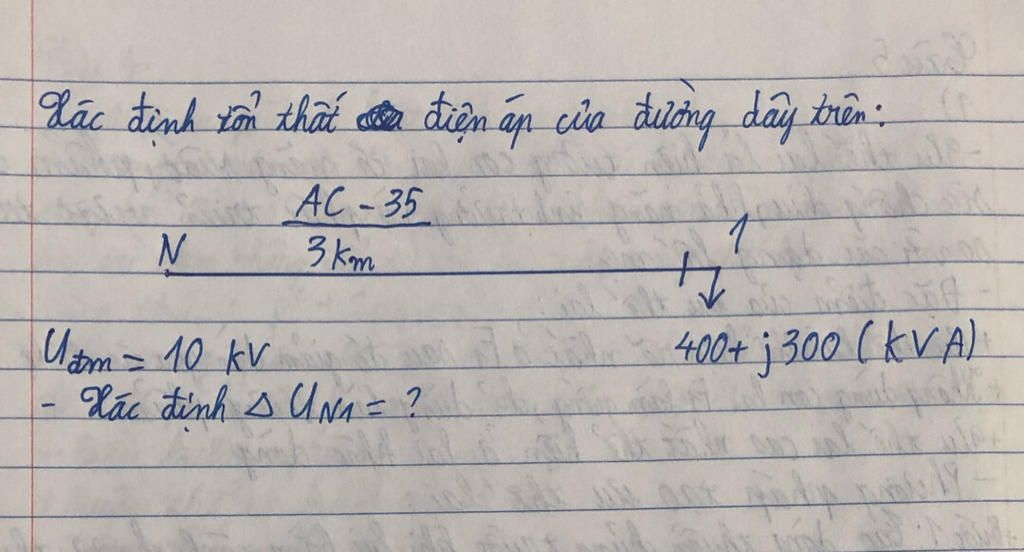 Xác định tổn thất điện áp của đường dây trên:
AC - 35
N 3 km 1
Uđm = 10 kV 400 + j 300 (kVA)
- Xác định Δ UN1 = ?